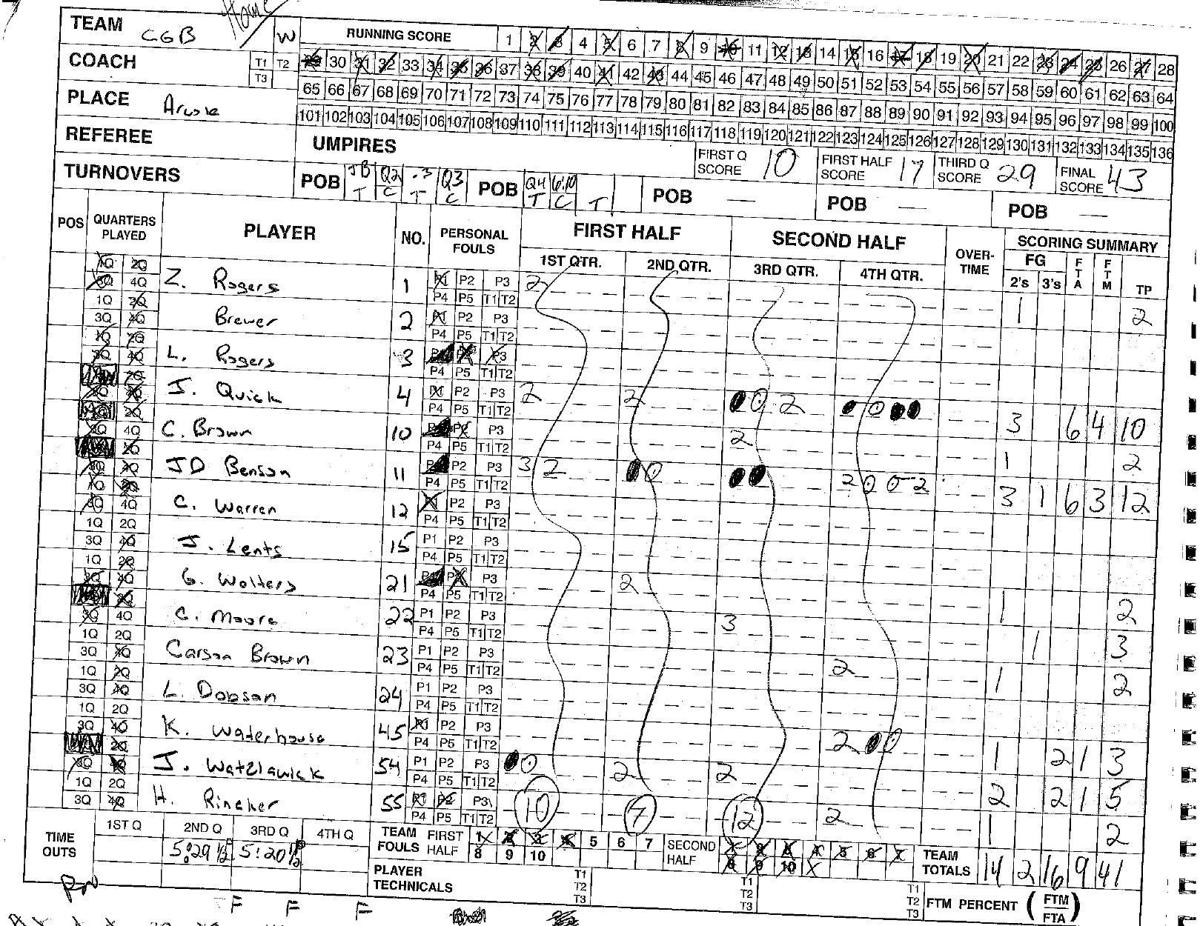 Home
TEAM CGB W RUNNING SCORE 1 2 3 4 5 6 7 8 9 10 11 12 13 14 15 16 17 18 19 20 21 22 23 24 25 26 27 28
COACH T1 T2 29 30 31 32 33 34 35 36 37 38 39 40 41 42 43 44 45 46 47 48 49 50 51 52 53 54 55 56 57 58 59 60 61 62 63 64
T3 65 66 67 68 69 70 71 72 73 74 75 76 77 78 79 80 81 82 83 84 85 86 87 88 89 90 91 92 93 94 95 96 97 98 99 100
PLACE 101 102 103 104 105 106 107 108 109 110 111 112 113 114 115 116 117 118 119 120 121 122 123 124 125 126 127 128 129 130 131 132 133 134 135 136
REFEREE UMPIRES FIRST Q SCORE 10 FIRST HALF SCORE 17 THIRD Q SCORE 29 FINAL SCORE 43
TURNOVERS POB JB T Q2 C .3 T Q3 C POB Q4 T 6:10 C T POB — POB — POB —
POS QUARTERS PLAYED PLAYER NO. PERSONAL FOULS FIRST HALF SECOND HALF OVER-TIME SCORING SUMMARY
1ST QTR. 2ND QTR. 3RD QTR. 4TH QTR. FG 2's 3's FTA FTM TP
1Q 2Q 3Q 4Q Z. Rogers 1 P1 P2 P3 P4 P5 T1 T2 2 1 2
1Q 2Q 3Q 4Q Brewer 2 P1 P2 P3 P4 P5 T1 T2
1Q 2Q 3Q 4Q L. Rogers 3 P3 P4 P5 T1 T2
2Q 3Q 4Q J. Quick 4 P1 P2 P3 P4 P5 T1 T2 2 2 0 2 0 3 6 4 10
2Q 3Q 4Q C. Brown 10 P2 P3 P4 P5 T1 T2 2 1 2
2Q 3Q 4Q JD Benson 11 P2 P3 P4 P5 T1 T2 3 2 0 2 0 0 2 3 1 6 3 12
1Q 2Q 3Q 4Q C. Warren 12 P1 P2 P3 P4 P5 T1 T2
1Q 2Q 3Q 4Q J. Lents 15 P1 P2 P3 P4 P5 T1 T2
1Q 2Q 3Q 4Q G. Wolters 21 P2 P3 P4 P5 T1 T2 2 1 2
2Q 3Q 4Q C. Moore 22 P1 P2 P3 P4 P5 T1 T2 3 1 3
1Q 2Q 3Q 4Q Carson Brown 23 P1 P2 P3 P4 P5 T1 T2 2 1 2
1Q 2Q 3Q 4Q L. Dobson 24 P1 P2 P3 P4 P5 T1 T2
1Q 2Q 3Q 4Q K. Waterhouse 45 P1 P2 P3 P4 P5 T1 T2 2 0 1 2 1 3
2Q 3Q 4Q J. Watzlawick 54 P1 P2 P3 P4 P5 T1 T2 0 2 2 2 2 1 5
1Q 2Q 3Q 4Q H. Rincker 55 P1 P2 P3 P4 P5 T1 T2 10 7 12 2 1 2
TIME OUTS 1ST Q 2ND Q 5:29 1/2 3RD Q 5:20 1/2 4TH Q TEAM FOULS FIRST HALF 1 2 3 4 5 6 7 8 9 10 SECOND HALF 1 2 3 4 5 6 7 8 9 10 TEAM TOTALS 14 2 16 9 41
PLAYER TECHNICALS T1 T2 T3 T1 T2 T3 T1 T2 T3 FTM PERCENT (FTM/FTA)
F F F